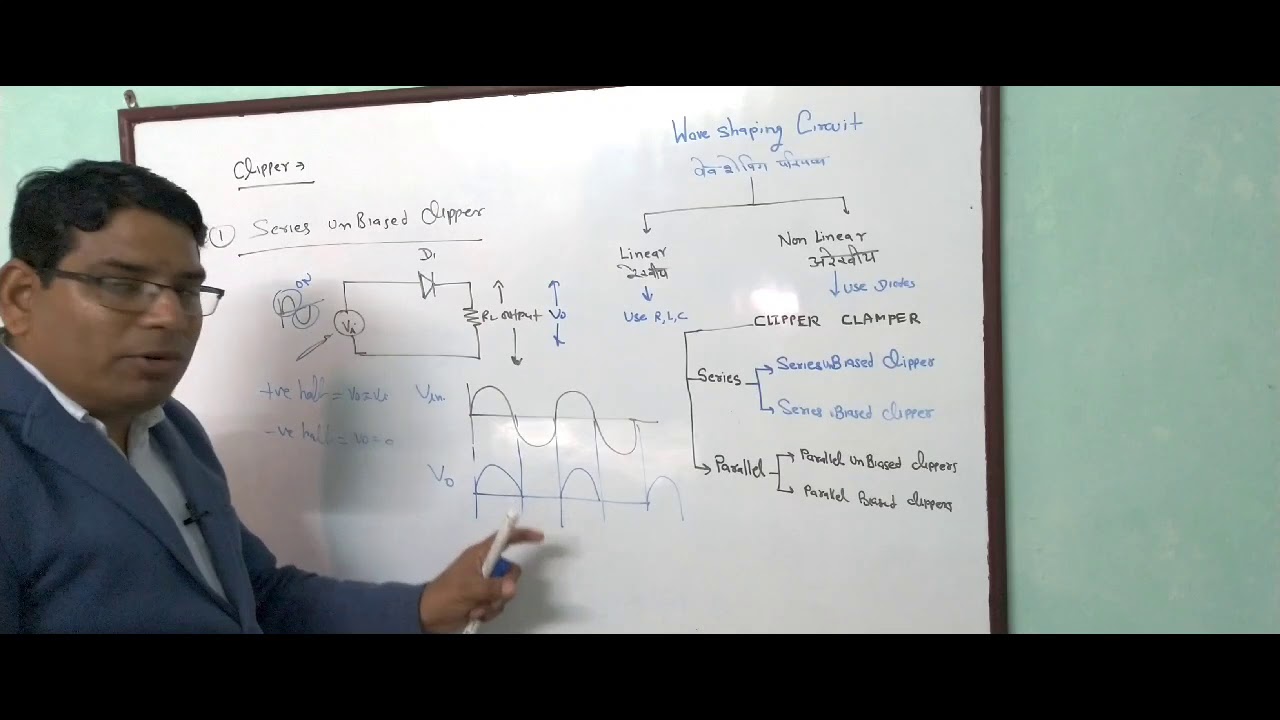 Clipper →
① Series UnBiased Clipper
D1
ON
Vi
RL output
Vo
+ve half = Vo = Vi
-ve half = Vo = 0
Vin
Vo
Wave Shaping Circuit
वेव शेपिंग परिपथ
Linear
रेखीय
Use R, L, C
Non Linear
अरेखीय
Use Diodes
CLIPPER CLAMPER
Series
Series UnBiased Clipper
Series Biased Clipper
Parallel
Parallel UnBiased Clippers
Parallel Biased Clippers